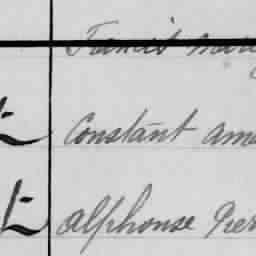 Francis Mary
Constant Ame
Alphonse Pier